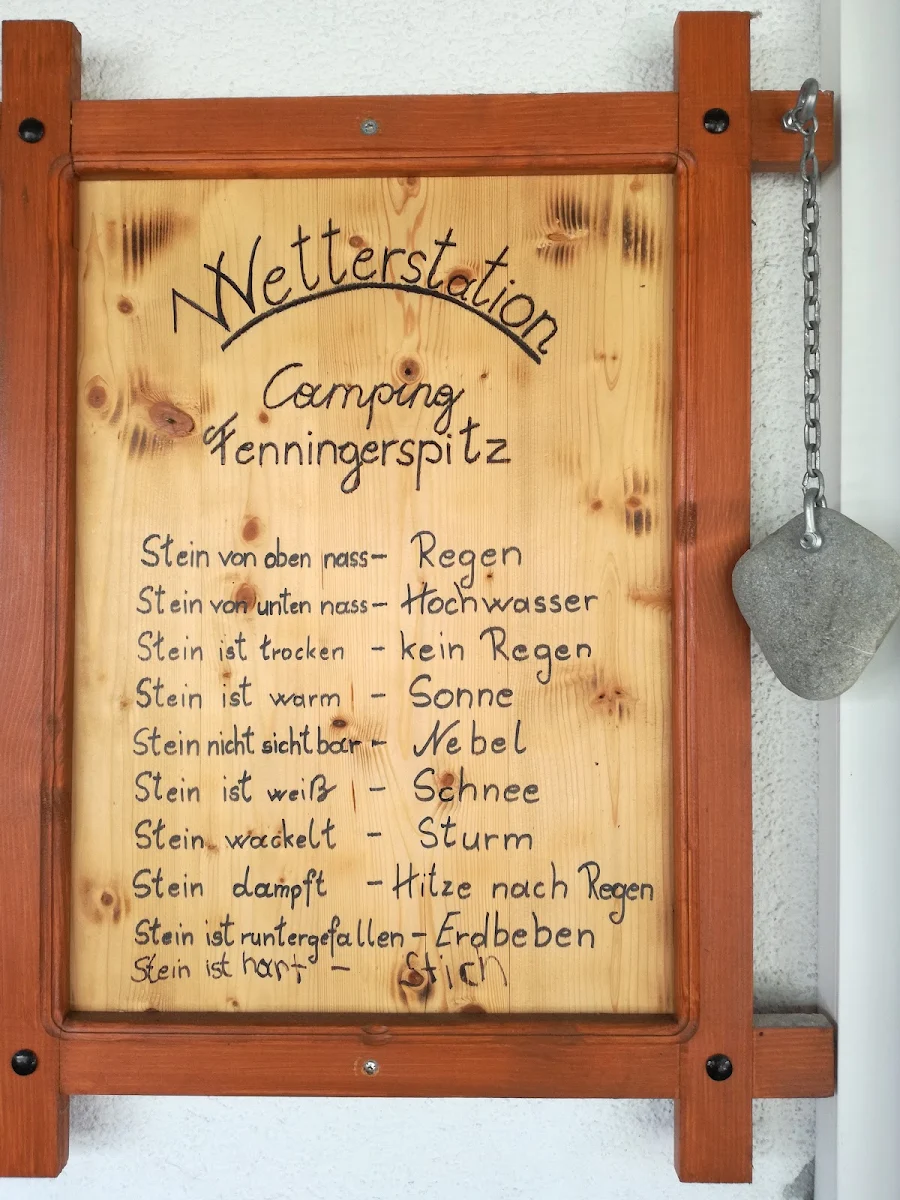 Wetterstation
Camping
Fenningerspitz
Stein von oben nass - Regen
Stein von unten nass - Hochwasser
Stein ist trocken - kein Regen
Stein ist warm - Sonne
Stein nicht sichtbar - Nebel
Stein ist weiß - Schnee
Stein wackelt - Sturm
Stein dampft - Hitze nach Regen
Stein ist runtergefallen - Erdbeben
Stein ist hart - Stich